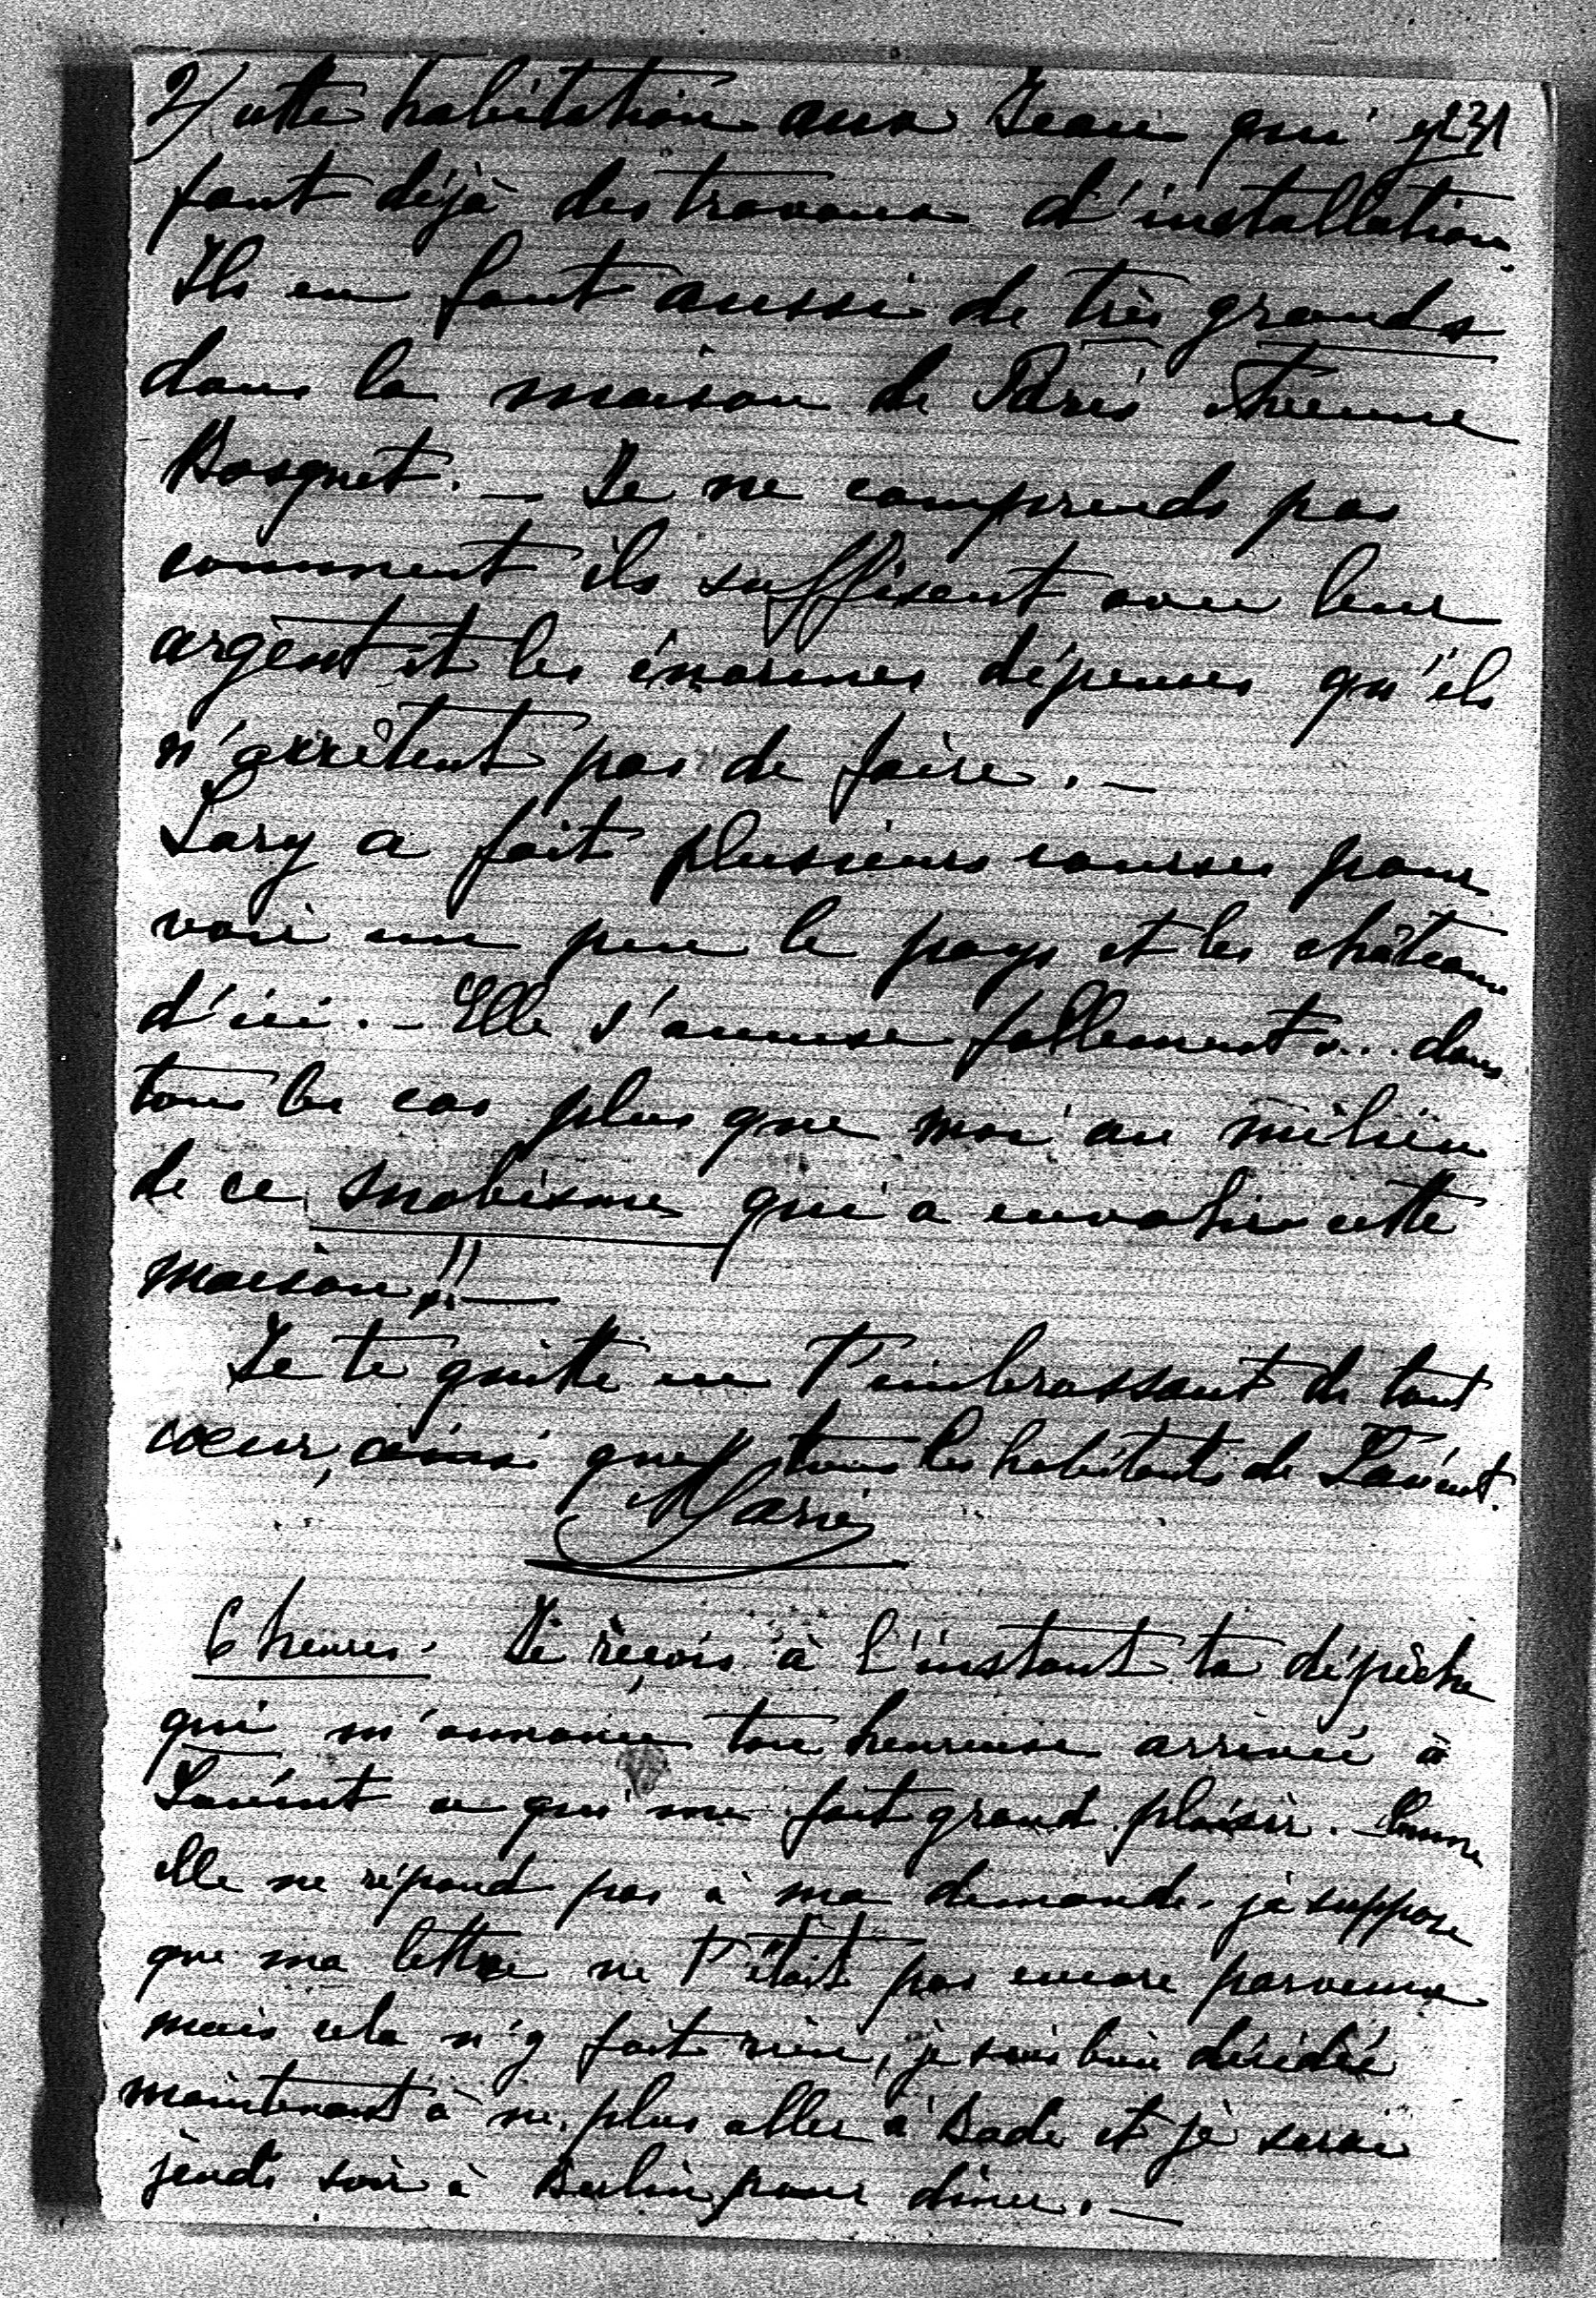 2/ cette habitation aux Jean qui y 231
font déjà des travaux d'installation.
Ils en font aussi de très grands
dans la maison de Paris Avenue
Bosquet. — Je ne comprends pas
comment ils suffisent avec leur
argent et les énormes dépenses qu'ils
n'arrêtent pas de faire. —
Lary a fait plusieurs courses pour
voir un peu le pays et les châteaux
d'ici. — Elle s'amuse follement... dans
tous les cas plus que moi au milieu
de ce snobisme qui a envahie cette
maison!! —
Je te quitte en t'embrassant de tout
coeur, ainsi que tous les habitants de
Marie
6 heures. Je reçois à l'instant ta dépêche
qui m'annonce ton heureuse arrivée à
ce qui me fait grand plaisir. — Comme
elle ne répond pas à ma demande, je suppose
que ma lettre ne t'était pas encore parvenue
mais cela n'y fait rien, je suis bien décidée
maintenant à ne plus aller à Bade et je serai
jeudi soir à Berlin pour dîner. —